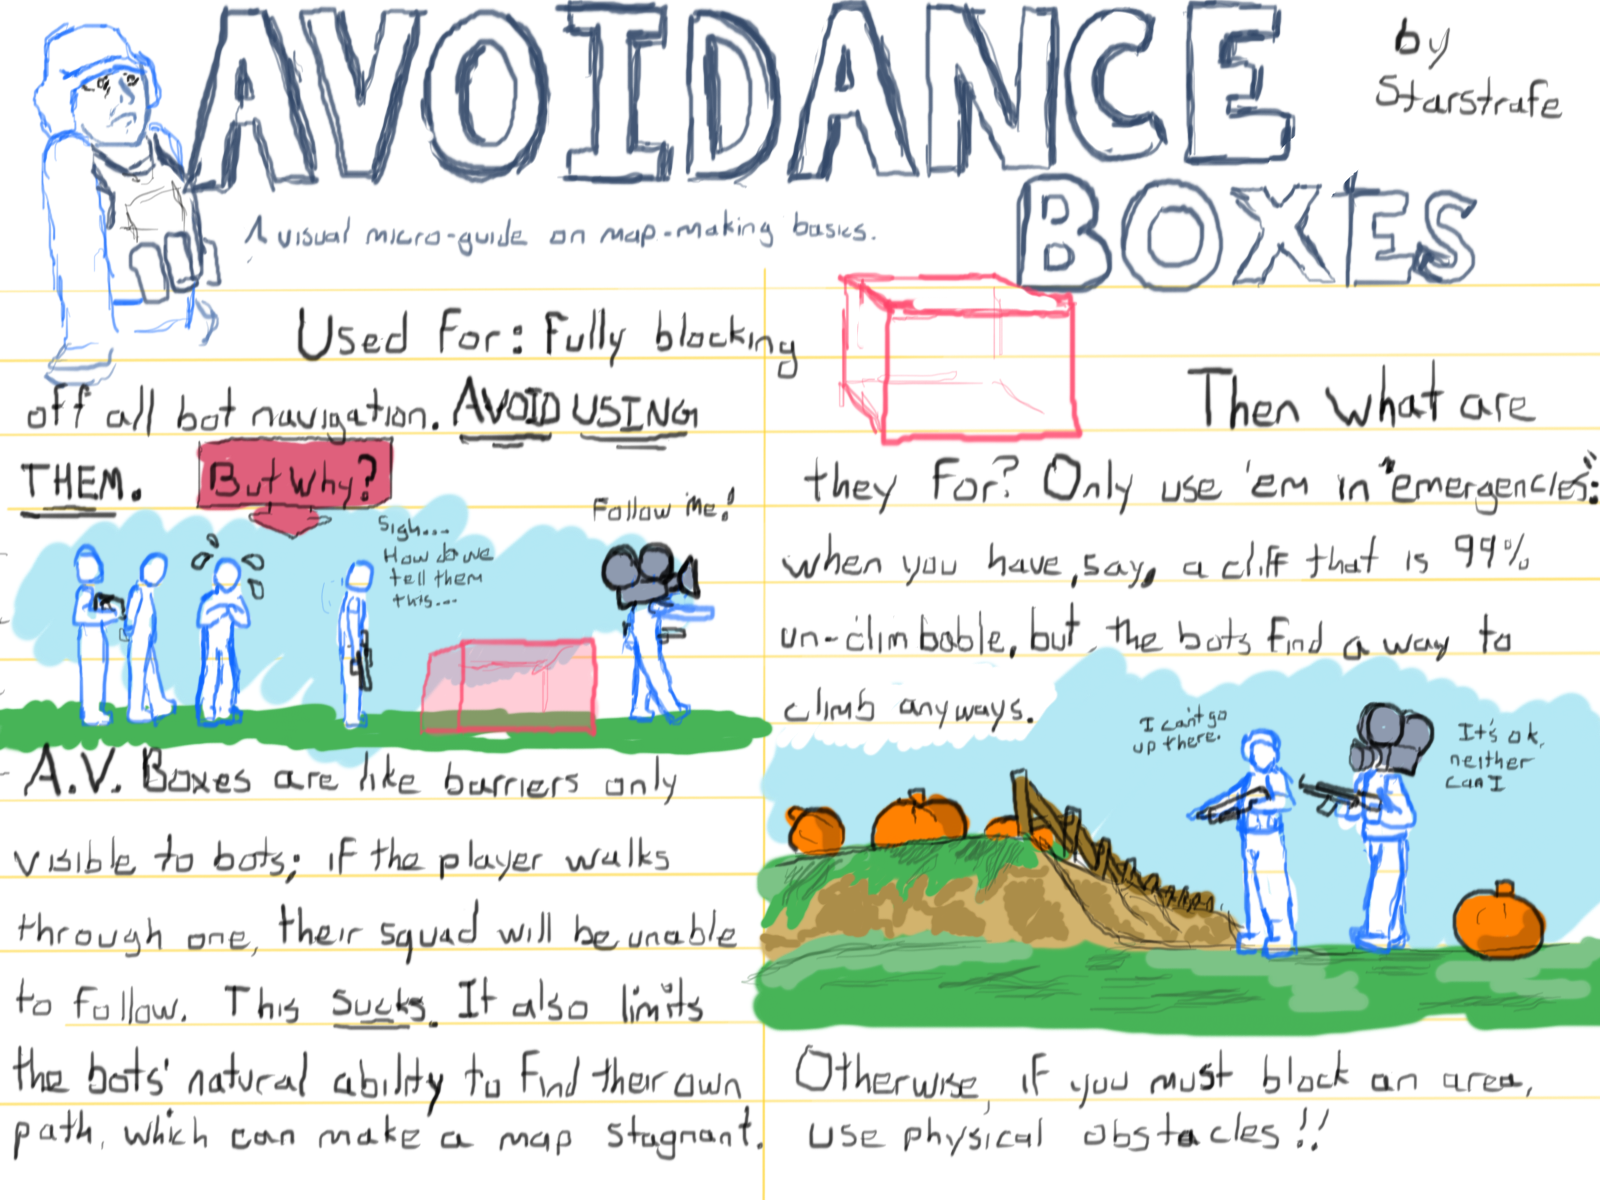 AVOIDANCE
BOXES
by
Starstrafe
A visual micro-guide on map-making basics.
Used For: Fully blocking
off all bot navigation. AVOID USING
THEM.
But Why?
Sigh....
How do we
tell them
this...
Follow Me!
A.V. Boxes are like barriers only
visible to bots; if the player walks
through one, their squad will be unable
to follow. This Sucks. It also limits
the bots' natural ability to find their own
path, which can make a map stagnant.
Then what are
they For? Only use 'em in "emergencies":
when you have, say, a cliff that is 99%
un-climbable, but the bots find a way to
climb anyways.
I can't go
up there.
It's ok,
neither
can I
Otherwise, if you must block an area,
use physical obstacles!!